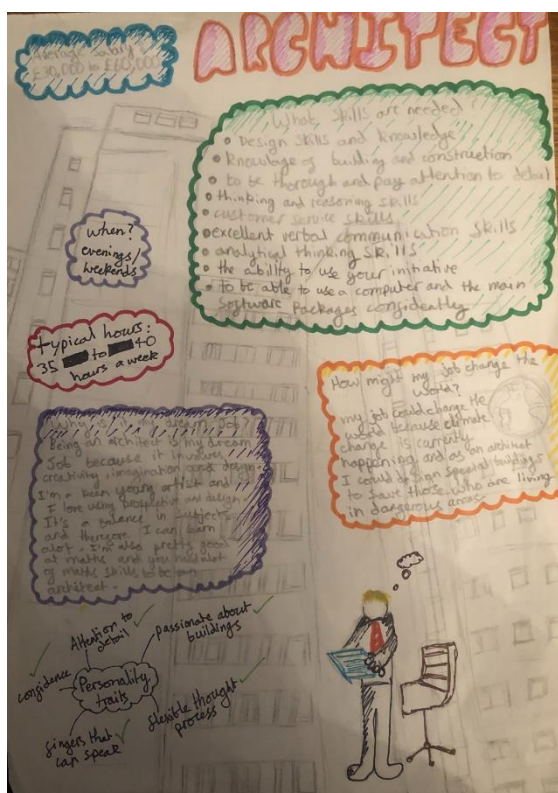 ARCHITECT
Average Salary
£30,000 to £60,000
What skills are needed?
• Design skills and knowledge
• knowulage of building and construction
• to be thorough and pay attention to detail
• thinking and reasoning skills
• customer service skills
• excellent verbal communication skills
• analytical thinking SKILLS
• the ability to use your initiative
• to be able to use a computer and the main
software packages confidently
When?
evenings/
weekends
typical hours:
35 to 40
hours a week
How might my job change the
world?
my job could change the
world because climate
change is currently
happening and as an architect
I could design special buildings
to save those who are living
in dangerous areas.
Why is it my dream Job?
Being an architect is my dream
Job because it involves
creativity, imagination and design.
I'm a keen young artist and
I love using prospective and design.
It's a balance in subjects
and therefore I can learn
alot. I'm also pretty good
at maths and you need alot
of maths skills to be an
architect.
Personality
traits
Attention to
detail
passionate about
buildings
confidence
flexible thought
process
fingers that
can speak